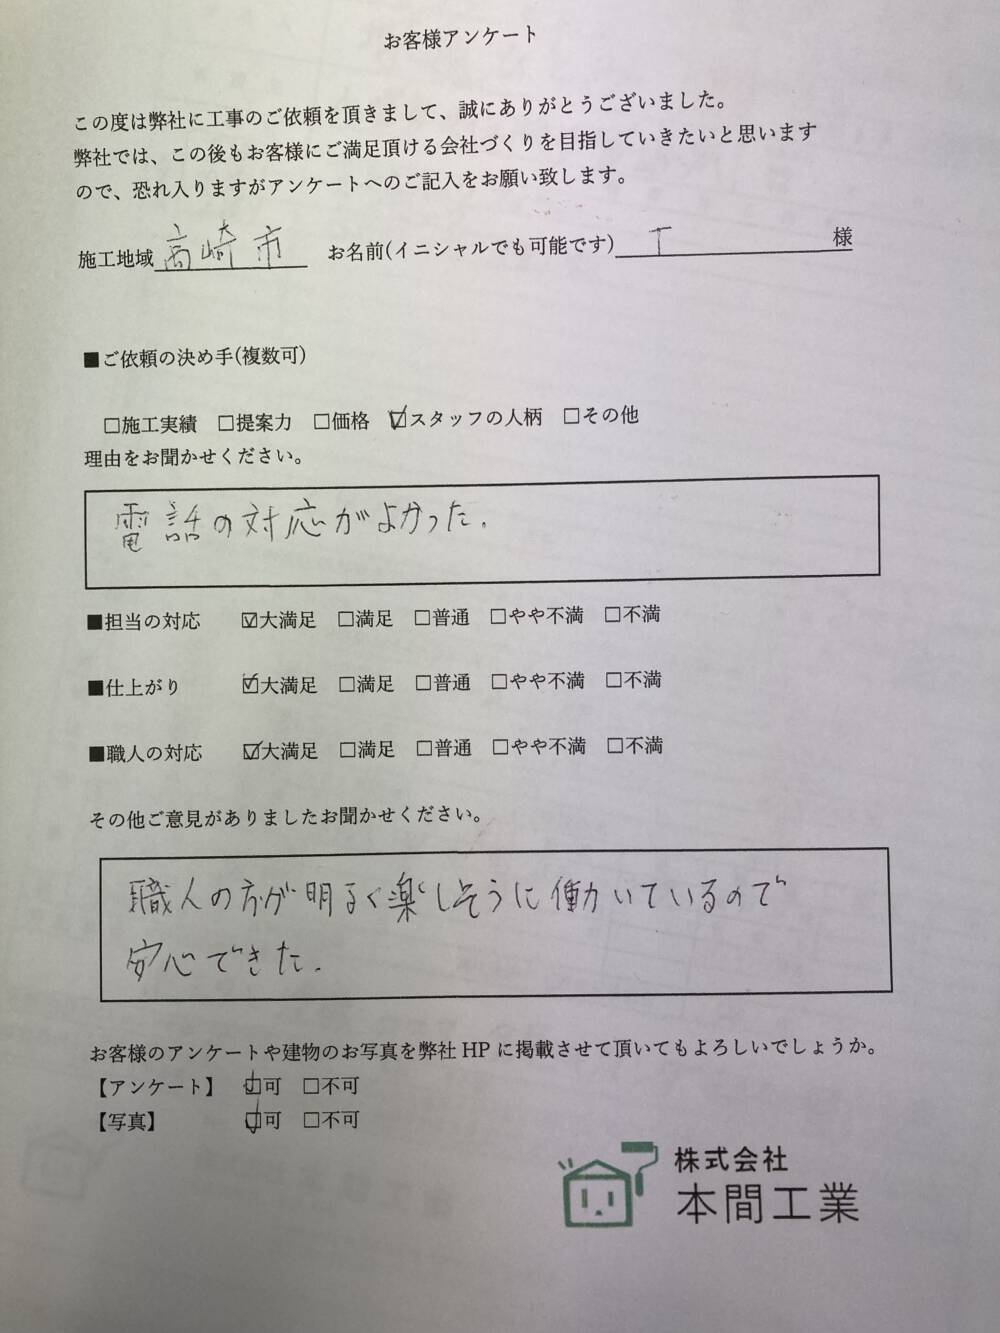 お客様アンケート
この度は弊社に工事のご依頼を頂きまして、誠にありがとうございました。
弊社では、この後もお客様にご満足頂ける会社づくりを目指していきたいと思います
ので、恐れ入りますがアンケートへのご記入をお願い致します。
施工地域 高崎市 お名前(イニシャルでも可能です) T 様
■ご依頼の決め手(複数可)
□施工実績 □提案力 □価格 ☑スタッフの人柄 □その他
理由をお聞かせください。
電話の対応がよかった.
■担当の対応 ☑大満足 □満足 □普通 □やや不満 □不満
■仕上がり ☑大満足 □満足 □普通 □やや不満 □不満
■職人の対応 ☑大満足 □満足 □普通 □やや不満 □不満
その他ご意見がありましたお聞かせください。
職人の方が明るく楽しそうに働いているので
安心できた.
お客様のアンケートや建物のお写真を弊社HPに掲載させて頂いてもよろしいでしょうか。
【アンケート】 ☑可 □不可
【写真】 ☑可 □不可
株式会社
本間工業